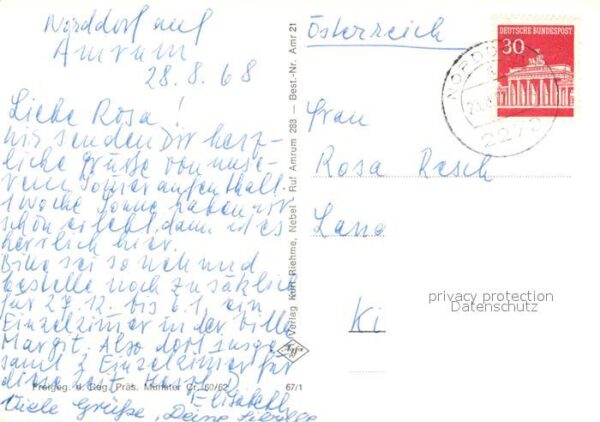 Norddorf auf
Amrum
28.8.68
Liebe Rosa!
wir senden Dir herz-
liche Grüße von unse-
rem Sommeraufenthalt.
1 Woche Sonne haben wir
schon erlebt, dann ist es
herrlich hier.
Bitte sei so nett und
bestelle noch zusätzlich
für 27.12. bis 6.1. ein
Einzelzimmer in der Villa
Margit. Also dort insge-
samt 2 Einzelzimmer für
diese Zeit. Herzl.
Elisabeth
Viele Grüße, Deine
Verlag Kurt Riehme, Nebel Ruf Amrum 283. — Best.-Nr. Amr 21
Agfa
Freigeg. d. Reg. Präs. Münster Cr. 60/62 67/1
Österreich
DEUTSCHE BUNDESPOST
30
NORDD
2279
Frau
Rosa Resch
Lana
Ki
privacy protection
Datenschutz